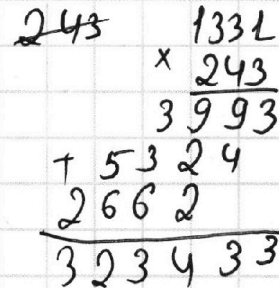 243 1331
× 243
3993
+ 5324
2662
323433